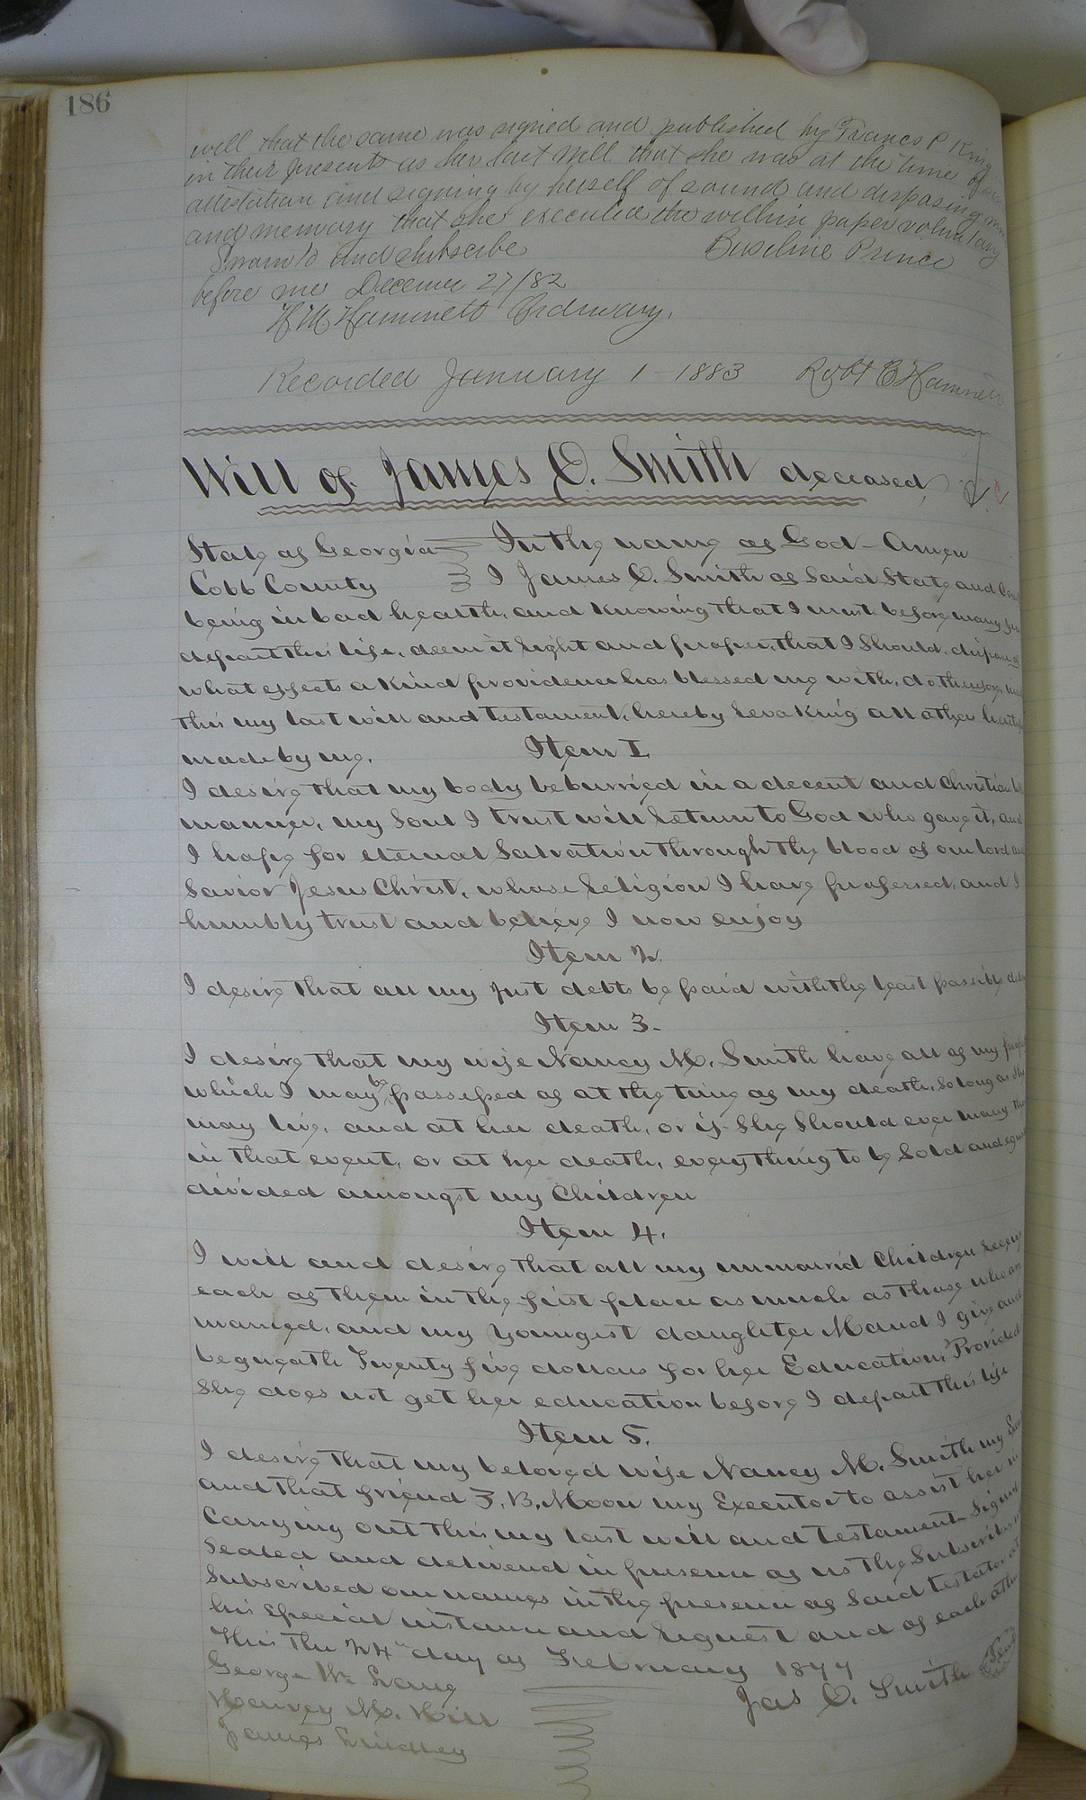 186
will that the same was signed and published by Frances P King
in their presents as her last will that she was at the time of
attestation and signing by herself of sound and disposing
and memory that she executed the within paper voluntary
Sworn to and subscribe Buseline Prince
before me December 27/82
H M Hammett Ordinary.
Recorded January 1 1883 Robt E Hammett
Will of James O. Smith deceased,
State of Georgia In the name of God - Amen
Cobb County I James O. Smith of Said State and
being in bad health, and Knowing that I must before many
depart this life, deem it right and proper, that I Should, dispose of
what effects a Kind providence has blessed me with, do therefore
this my last will and testament, hereby revoking all other
made by me.
Item 1
I desire that my body be burried in a decent and Christian
manner, my Soul I trust will return to God who gave it, and
I hope for eternal Salvation through the blood of our lord and
Savior Jesus Christ, whose religion I have professed, and I
humbly trust and believe I now enjoy
Item 2.
I desire that all my just debts be paid with the least possible delay
Item 3.
I desire that my wife Nancy M. Smith have all of my
which I may be possessed of at the time of my death, So long as She
may live, and at her death, or if She Should ever marry then
in that event, or at her death, everything to be Sold and
divided amongst my Children
Item 4.
I will and desire that all my unmarrid Children
each of them in the first place as much as those who are
married, and my Youngest daughter Maud I give and
bequeath Twenty five dollars for her Education, Provided
She does not get her education before I depart this life
Item 5.
I desire that my beloved wife Nancy M. Smith my
and that friend Z. B. Moon my Executor to assist her in
Carrying out this my last will and testament Signed
Sealed and deliverd in presence of us the Subscribers
Subscribed our names in the presence of Said testator at
his Special instance and request and of each other
This the 24th day of February 1877
Jas O. Smith
George W.
Harvey M. Hill
James Lindley